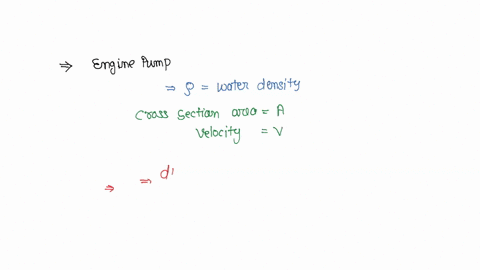 ⇒ Engine Pump
⇒ ρ = water density
Cross Section area = A
Velocity = V
⇒ ⇒ d